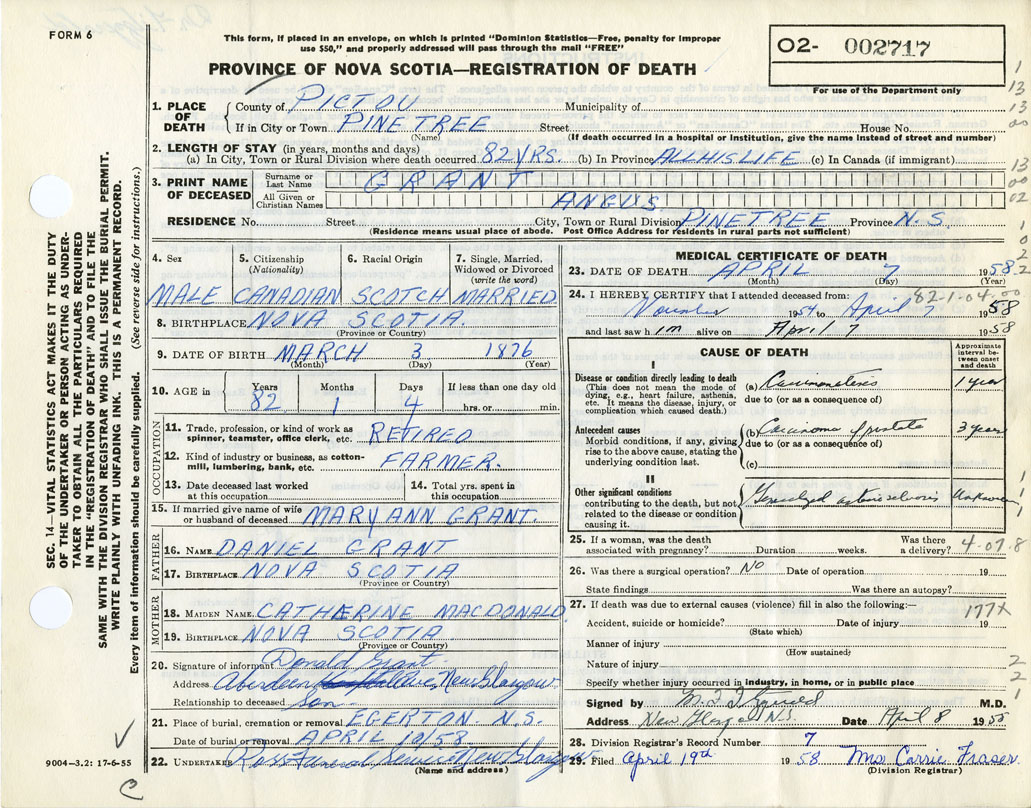 FORM 6
This form, if placed in an envelope, on which is printed "Dominion Statistics—Free, penalty for improper
use $50," and properly addressed will pass through the mail "FREE"
PROVINCE OF NOVA SCOTIA—REGISTRATION OF DEATH
02- 002717
For use of the Department only
SEC. 14—VITAL STATISTICS ACT MAKES IT THE DUTY
OF THE UNDERTAKER OR PERSON ACTING AS UNDER-
TAKER TO OBTAIN ALL THE PARTICULARS REQUIRED
IN THE "REGISTRATION OF DEATH" AND TO FILE THE
SAME WITH THE DIVISION REGISTRAR WHO SHALL ISSUE THE BURIAL PERMIT.
WRITE PLAINLY WITH UNFADING INK. THIS IS A PERMANENT RECORD.
Every item of information should be carefully supplied. (See reverse side for instructions.)
1. PLACE OF DEATH
County of PICTOU Municipality of
If in City or Town PINE TREE Street House No.
(Name) (If death occurred in a hospital or institution, give the name instead of street and number)
2. LENGTH OF STAY (in years, months and days)
(a) In City, Town or Rural Division where death occurred 82 YRS. (b) In Province ALL HIS LIFE (c) In Canada (if immigrant)
3. PRINT NAME OF DECEASED
Surname or Last Name GRANT
All Given or Christian Names ANGUS
RESIDENCE No. Street City, Town or Rural Division PINETREE Province N.S.
(Residence means usual place of abode. Post Office Address for residents in rural parts not sufficient)
4. Sex 5. Citizenship (Nationality) 6. Racial Origin 7. Single, Married, Widowed or Divorced (write the word)
MALE CANADIAN SCOTCH MARRIED
8. BIRTHPLACE NOVA SCOTIA.
(Province or Country)
9. DATE OF BIRTH MARCH 3 1876
(Month) (Day) (Year)
10. AGE in Years Months Days If less than one day old
82 1 4 hrs. or min.
OCCUPATION
11. Trade, profession, or kind of work as
spinner, teamster, office clerk, etc. RETIRED
12. Kind of industry or business, as cotton-
mill, lumbering, bank, etc. FARMER.
13. Date deceased last worked at this occupation 14. Total yrs. spent in this occupation
15. If married give name of wife
or husband of deceased MARY ANN GRANT.
FATHER
16. NAME DANIEL GRANT
17. BIRTHPLACE NOVA SCOTIA
(Province or Country)
MOTHER
18. MAIDEN NAME CATHERINE MACDONALD
19. BIRTHPLACE NOVA SCOTIA
(Province or Country)
20. Signature of informant Donald Grant.
Address Aberdeen Ave, New Glasgow
Relationship to deceased son.
21. Place of burial, cremation or removal EGERTON. N.S.
Date of burial or removal APRIL 10/58
22. UNDERTAKER Ross Funeral Service New Glasgow
(Name and address)
9004—3.2: 17-6-55
MEDICAL CERTIFICATE OF DEATH
23. DATE OF DEATH APRIL 7 1958
(Month) (Day) (Year)
24. I HEREBY CERTIFY that I attended deceased from: 82-1-04.00
November 1954 to April 7 1958
and last saw him alive on April 7 1958
CAUSE OF DEATH
Approximate interval between onset and death
I
Disease or condition directly leading to death
(This does not mean the mode of
dying, e.g., heart failure, asthenia,
etc. It means the disease, injury, or
complication which caused death.)
(a) Carcinomatosis 1 year
due to (or as a consequence of)
Antecedent causes
Morbid conditions, if any, giving
rise to the above cause, stating the
underlying condition last.
(b) Carcinoma of prostate 3 years
due to (or as a consequence of)
(c)
II
Other significant conditions
contributing to the death, but not
related to the disease or condition
causing it.
Generalized arteriosclerosis Unknown
25. If a woman, was the death
associated with pregnancy? Duration weeks. Was there a delivery? 4-07.8
26. Was there a surgical operation? No Date of operation 19
State findings Was there an autopsy?
27. If death was due to external causes (violence) fill in also the following:—
177X
Accident, suicide or homicide? Date of injury 19
(State which)
Manner of injury
(How sustained)
Nature of injury
Specify whether injury occurred in industry, in home, or in public place
Signed by M.D.
Address New Glasgow N.S. Date April 8 1958
28. Division Registrar's Record Number 7
29. Filed April 19th 1958 Mrs Carrie Fraser.
(Division Registrar)